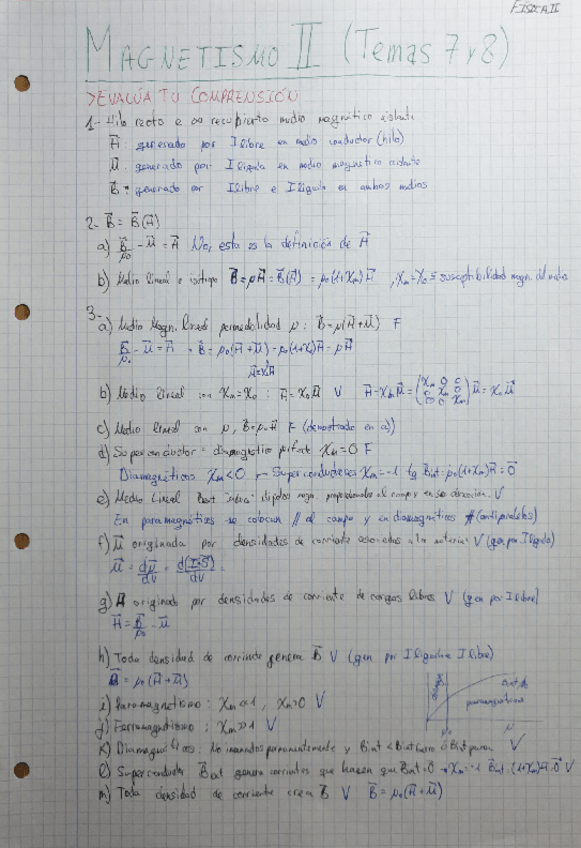 FÍSICA II
MAGNETISMO II (Temas 7 y 8)
>EVALÚA TU COMPRENSIÓN
1- Hilo recto e ∞ recubierto medio magnético aislante
H⃗ generado por I libre en medio conductor (hilo)
M⃗ generado por I ligada en medio magnético aislante
B⃗ generado por I libre e I ligada en ambos medios
2- B⃗ = B⃗(H⃗)
a) B⃗/μ₀ - M⃗ = H⃗ No, esta es la definición de H⃗
b) Medio lineal e isótropo B⃗ = μH⃗ = B⃗(H⃗) = μ₀(1+χₘ)H⃗ , χₘ=χ₀ ≡ susceptibilidad magn. del medio
3-
a) Medio Magn. lineal permeabilidad μ : B⃗ = μ(H⃗+M⃗) F
B⃗/μ₀ - M⃗ = H⃗ → B⃗ = μ₀(H⃗+M⃗) = μ₀(1+χ₀)H⃗ = μH⃗
M⃗=χ₀H⃗
b) Medio lineal con χₘ=χ₀ : V
c) Medio lineal con μ, F (demostrado en a))
d) Superconductor = diamagnético perfecto χₘ=0 F
Diamagnéticos χₘ<0 → Superconductores χₘ=-1 tq B⃗int = μ₀(1+χₘ)H⃗ = 0⃗
e) Medio Lineal Bext "induce" dipolos magn. proporcionales al campo y en su dirección. V
En paramagnéticos se colocan // al campo y en diamagnéticos (antiparalelos)
f) M⃗ originada por densidades de corriente asociadas a la materia V (gen por I ligada)
M⃗ = dμ⃗/dV = d(I·S⃗)/dV
g) H⃗ originado por densidades de corriente de cargas libres V (gen por I libre)
H⃗ = B⃗/μ₀ - M⃗
h) Toda densidad de corriente genera B⃗ V (gen por I ligada e I libre)
B⃗ = μ₀(H⃗+M⃗)
i) Paramagnetismo : χₘ ≪ 1 , χₘ>0 V
paramagnéticos
j) Ferromagnetismo : χₘ≫1 V
k) Diamagnéticos : No imanados permanentemente y Bint < Bexterno V
l) Superconductor B⃗ext genera corrientes que hacen que Bint=0 → χₘ=-1 V
m) Toda densidad de corriente crea B⃗ V B⃗ = μ₀(H⃗+M⃗)